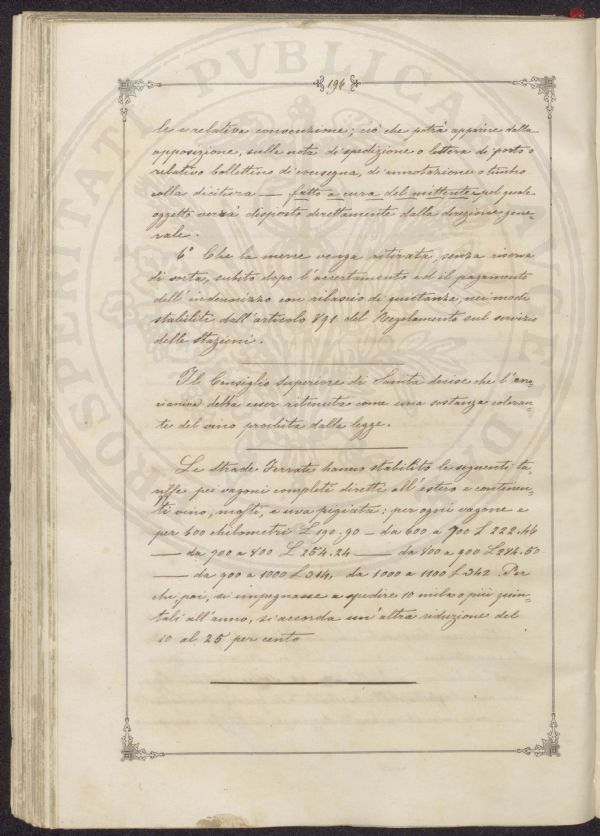 194
le e relativa consecuzione; ciò che potrà apparire dalla
apposizione, sulla nota di spedizione o lettera di porto o
relativo bollettino di consegna, di annotazione o timbro
colla dicitura — fatto a cura del mittente, pel quale
oggetto verrà disposto direttamente dalla direzione gene-
rale.
6° Che la merce venga ritirata, senza riserva
di sorta, subito dopo l'accertamento ed il pagamento
dell'indennizzo con rilascio di quietanza, nei modi
stabiliti dall'articolo 891 del Regolamento sul servizio
delle stazioni.
Il Consiglio Superiore di Sanità decise che l'en=
cianina debba esser ritenuta come una sostanza coloran=
te del vino proibita dalla legge.
Le Strade Ferrate hanno stabilito le seguenti ta
riffe pei vagoni completi diretti all'estero e contenen=
ti vino, mosti, e uva pigiata: per ogni vagone e
per 600 chilometri L 190.90 — da 600 a 700 L 222.46
— da 700 a 800 L 254.24 — da 800 a 900 L 284.50
— da 900 a 1000 L 314, da 1000 a 1100 L 342. Per
chi, poi, si impegnasse a spedire 10 mila o più quin=
tali all'anno, si accorda un'altra riduzione del
10 al 25 per cento